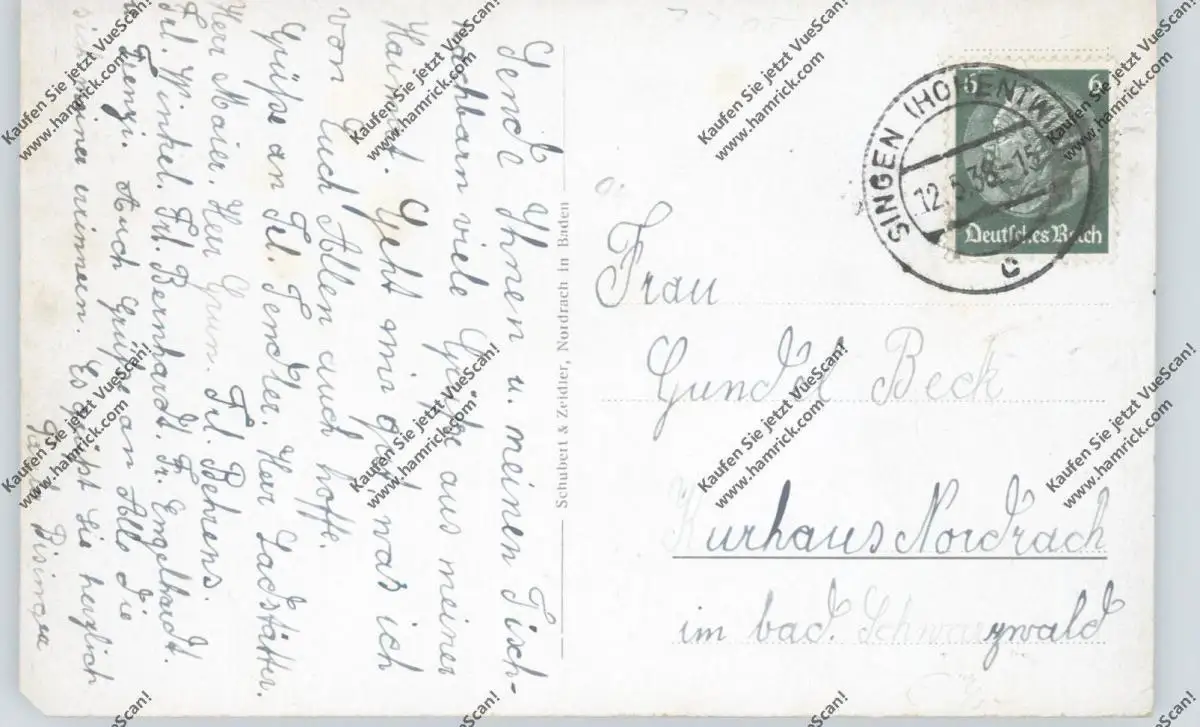 Sende Ihnen u. meinen Tisch-
nachbarn viele Grüße aus meiner
Haimat. Geht mir gut, was ich
von Euch Allen auch hoffe.
Grüße an Frl. Fendler. Herr Ladstätter.
Herr Maier. Herr Grun. Frl. Behrens.
Frl. Winkel. Frl. Bernhard. Fr. Engelhardt.
Fenzi. Auch Grüße an Alle Die
sich meiner erinnern. Es grüßt Sie herzlich
Schubert & Zeidler, Nordrach in Baden
SINGEN (HOHENTWIEL)
12.5.38.-15
c
6 6
Deutsches Reich
Frau
Gundel Beck
Kurhaus Nordrach
im bad. Schwarzwald
Kaufen Sie jetzt VueScan!
www.hamrick.com
Kaufen Sie jetzt VueScan!
www.hamrick.com
Kaufen Sie jetzt VueScan!
www.hamrick.com
Kaufen Sie jetzt VueScan!
www.hamrick.com
Kaufen Sie jetzt VueScan!
www.hamrick.com
Kaufen Sie jetzt VueScan!
www.hamrick.com
Kaufen Sie jetzt VueScan!
www.hamrick.com
Kaufen Sie jetzt VueScan!
www.hamrick.com